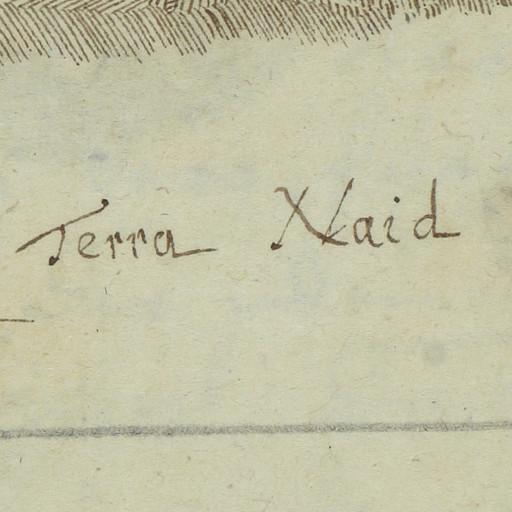 Terra Naid